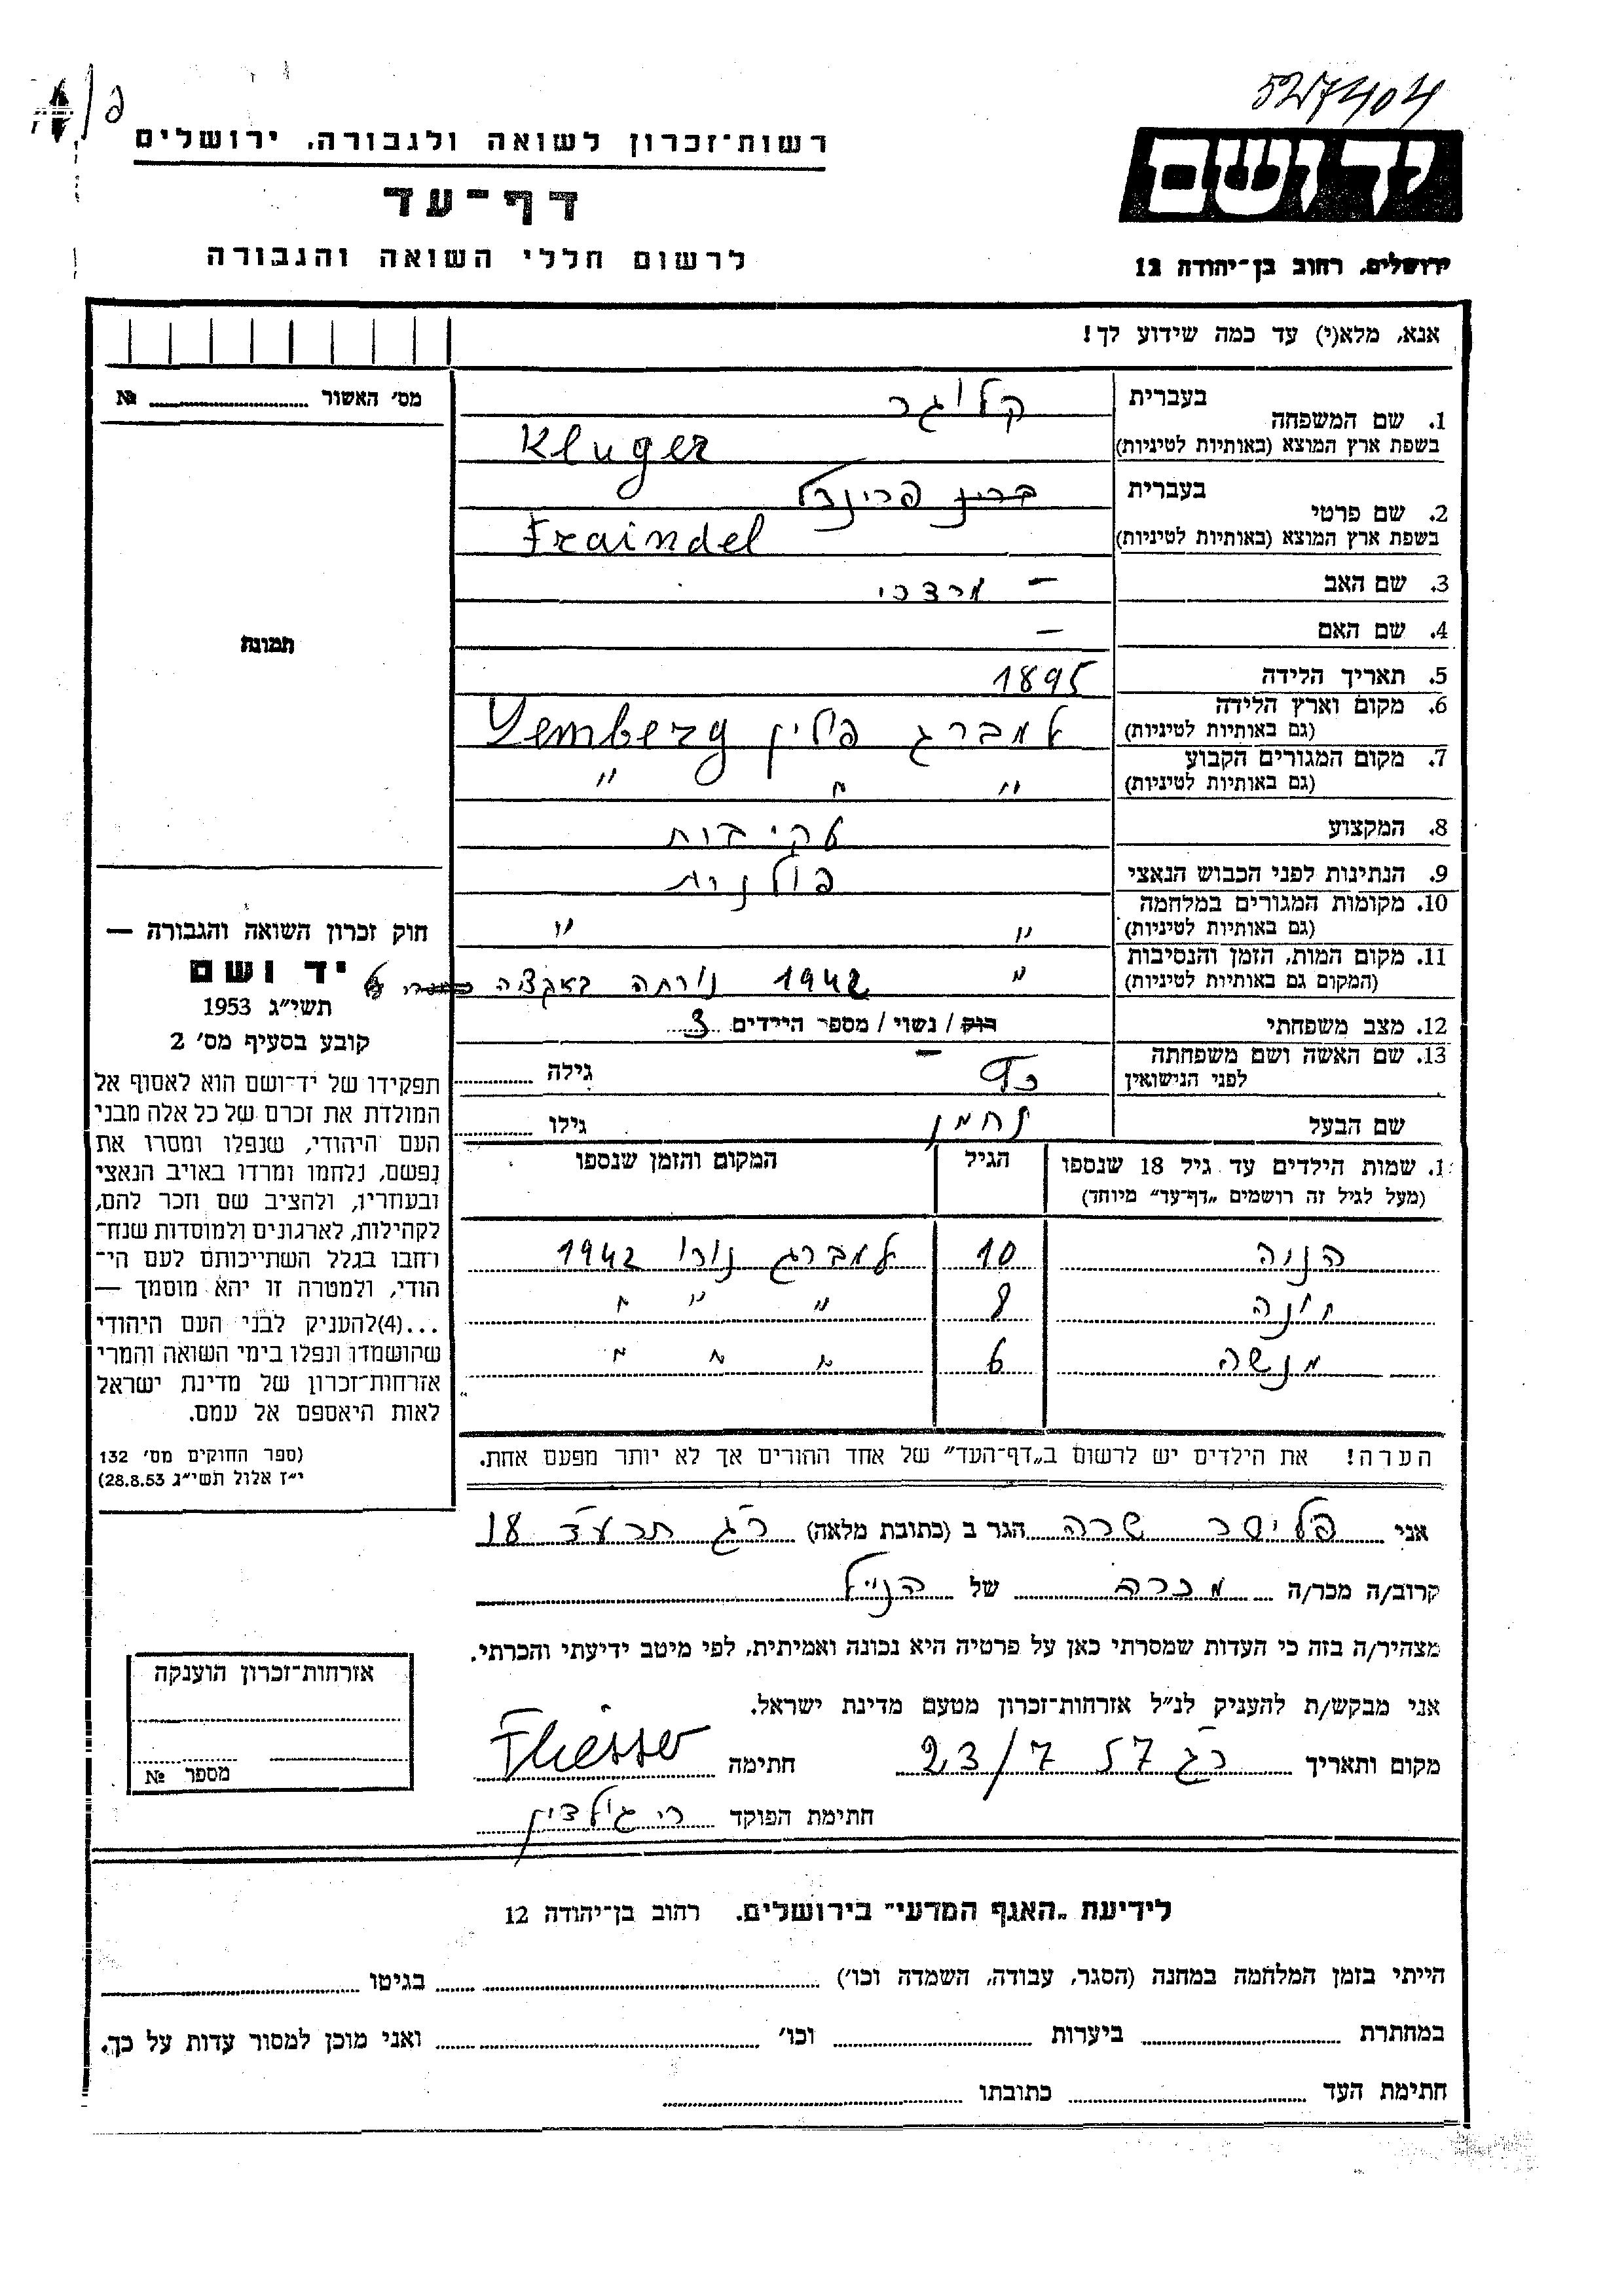 5217404
רשות־זכרון לשואה ולגבורה, ירושלים
יד ושם
דף־עד
לרשום חללי השואה והגבורה
ירושלים, רחוב בן־יהודה 12
אנא, מלא(י) עד כמה שידוע לך!
מס' האשור № 
1. שם המשפחה
בעברית קלוגר
בשפת ארץ המוצא (באותיות לטיניות) Kluger
2. שם פרטי
בעברית פריינדל
בשפת ארץ המוצא (באותיות לטיניות) Fraindel
3. שם האב – מרדכי
4. שם האם –
תמונה
5. תאריך הלידה 1895
6. מקום וארץ הלידה
(גם באותיות לטיניות) למברג פולין Lemberg
7. מקום המגורים הקבוע
(גם באותיות לטיניות) " " "
8. המקצוע עקרבות
9. הנתינות לפני הכבוש הנאצי פולנית
10. מקומות המגורים במלחמה
(גם באותיות לטיניות) " "
11. מקום המות, הזמן והנסיבות
(המקום גם באותיות לטיניות) " 1942 נורתה באקציה
12. מצב משפחתי רוק / נשוי / מספר הילדים 3
13. שם האשה ושם משפחתה
לפני הנישואין – גילה
שם הבעל נחמן גילו
חוק זכרון השואה והגבורה —
יד ושם
תשי"ג 1953
קובע בסעיף מס' 2
תפקידו של יד־ושם הוא לאסוף אל
המולדת את זכרם של כל אלה מבני
העם היהודי, שנפלו ומסרו את
נפשם, נלחמו ומרדו באויב הנאצי
ובעוזריו, ולהציב שם וזכר להם,
לקהילות, לארגונים ולמוסדות שנח־
רבו בגלל השתייכותם לעם הי־
הודי, ולמטרה זו יהא מוסמך —
...(4)להעניק לבני העם היהודי
שהושמדו ונפלו בימי השואה והמרי
אזרחות־זכרון של מדינת ישראל
לאות היאספם אל עמם.
(ספר החוקים מס' 132
י"ז אלול תשי"ג 28.8.53)
1. שמות הילדים עד גיל 18 שנספו הגיל המקום והזמן שנספו
(מעל לגיל זה רושמים „דף־עד" מיוחד)
הניה 10 למברג נורו 1942
יונה 8 " " "
מנשה 6 " " "
הערה! את הילדים יש לרשום ב„דף־העד" של אחד ההורים אך לא יותר מפעם אחת.
אני פליסר שרה הגר ב (כתובת מלאה) רג תרע״ד 18
קרוב/ה מכר/ה מכרה של הנ"ל
מצהיר/ה בזה כי העדות שמסרתי כאן על פרטיה היא נכונה ואמיתית, לפי מיטב ידיעתי והכרתי.
אני מבקש/ת להעניק לנ"ל אזרחות־זכרון מטעם מדינת ישראל.
מקום ותאריך רג 23/7 57 חתימה Fliesser
חתימת הפוקד
אזרחות־זכרון הוענקה
מספר №
לידיעת „האגף המדעי" בירושלים. רחוב בן־יהודה 12
הייתי בזמן המלחמה במחנה (הסגר, עבודה, השמדה וכו') בגיטו
במחתרת ביערות וכו' ואני מוכן למסור עדות על כך.
חתימת העד כתובתו